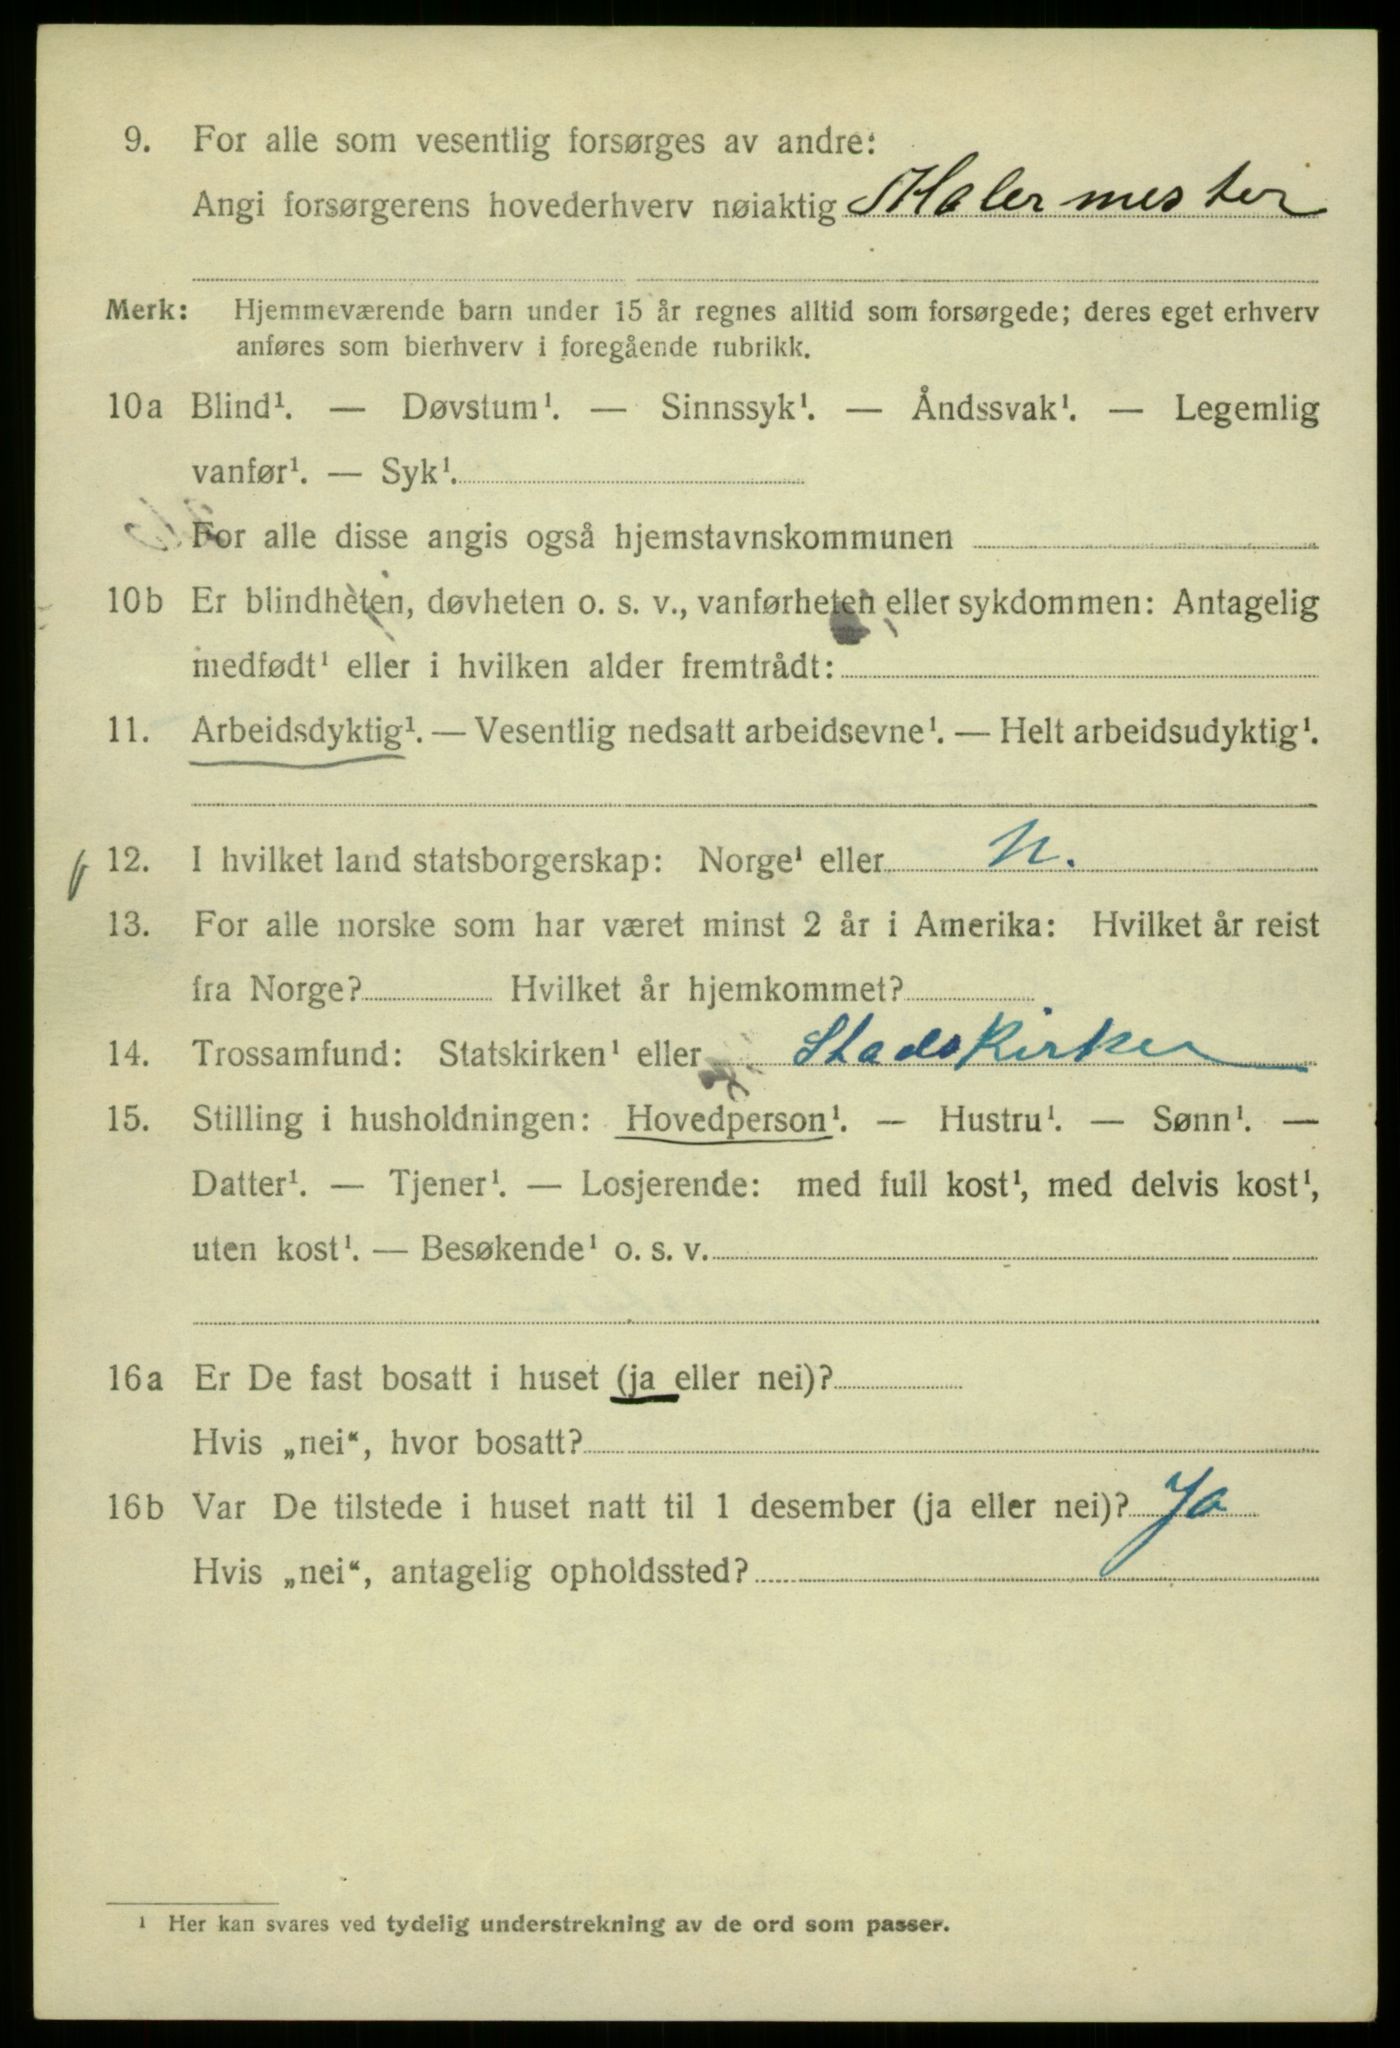 9. For alle som vesentlig forsørges av andre:
Angi forsørgerens hovederhverv nøiaktig Malermester
Merk: Hjemmeværende barn under 15 år regnes alltid som forsørgede; deres eget erhverv
anføres som bierhverv i foregående rubrikk.
10a Blind¹. — Døvstum¹. — Sinnssyk¹. — Åndssvak¹. — Legemlig
vanfør¹. — Syk¹.
For alle disse angis også hjemstavnskommunen
10b Er blindheten, døvheten o. s. v., vanførheten eller sykdommen: Antagelig
medfødt¹ eller i hvilken alder fremtrådt:
11. Arbeidsdyktig¹. — Vesentlig nedsatt arbeidsevne¹. — Helt arbeidsudyktig¹.
12. I hvilket land statsborgerskap: Norge¹ eller N.
13. For alle norske som har været minst 2 år i Amerika: Hvilket år reist
fra Norge? Hvilket år hjemkommet?
14. Trossamfund: Statskirken¹ eller Stadskirken
15. Stilling i husholdningen: Hovedperson¹. — Hustru¹. — Sønn¹. —
Datter¹. — Tjener¹. — Losjerende: med full kost¹, med delvis kost¹,
uten kost¹. — Besøkende¹ o. s. v.
16a Er De fast bosatt i huset (ja eller nei)?
Hvis „nei“, hvor bosatt?
16b Var De tilstede i huset natt til 1 desember (ja eller nei)? Ja
Hvis „nei“, antagelig opholdssted?
¹ Her kan svares ved tydelig understrekning av de ord som passer.